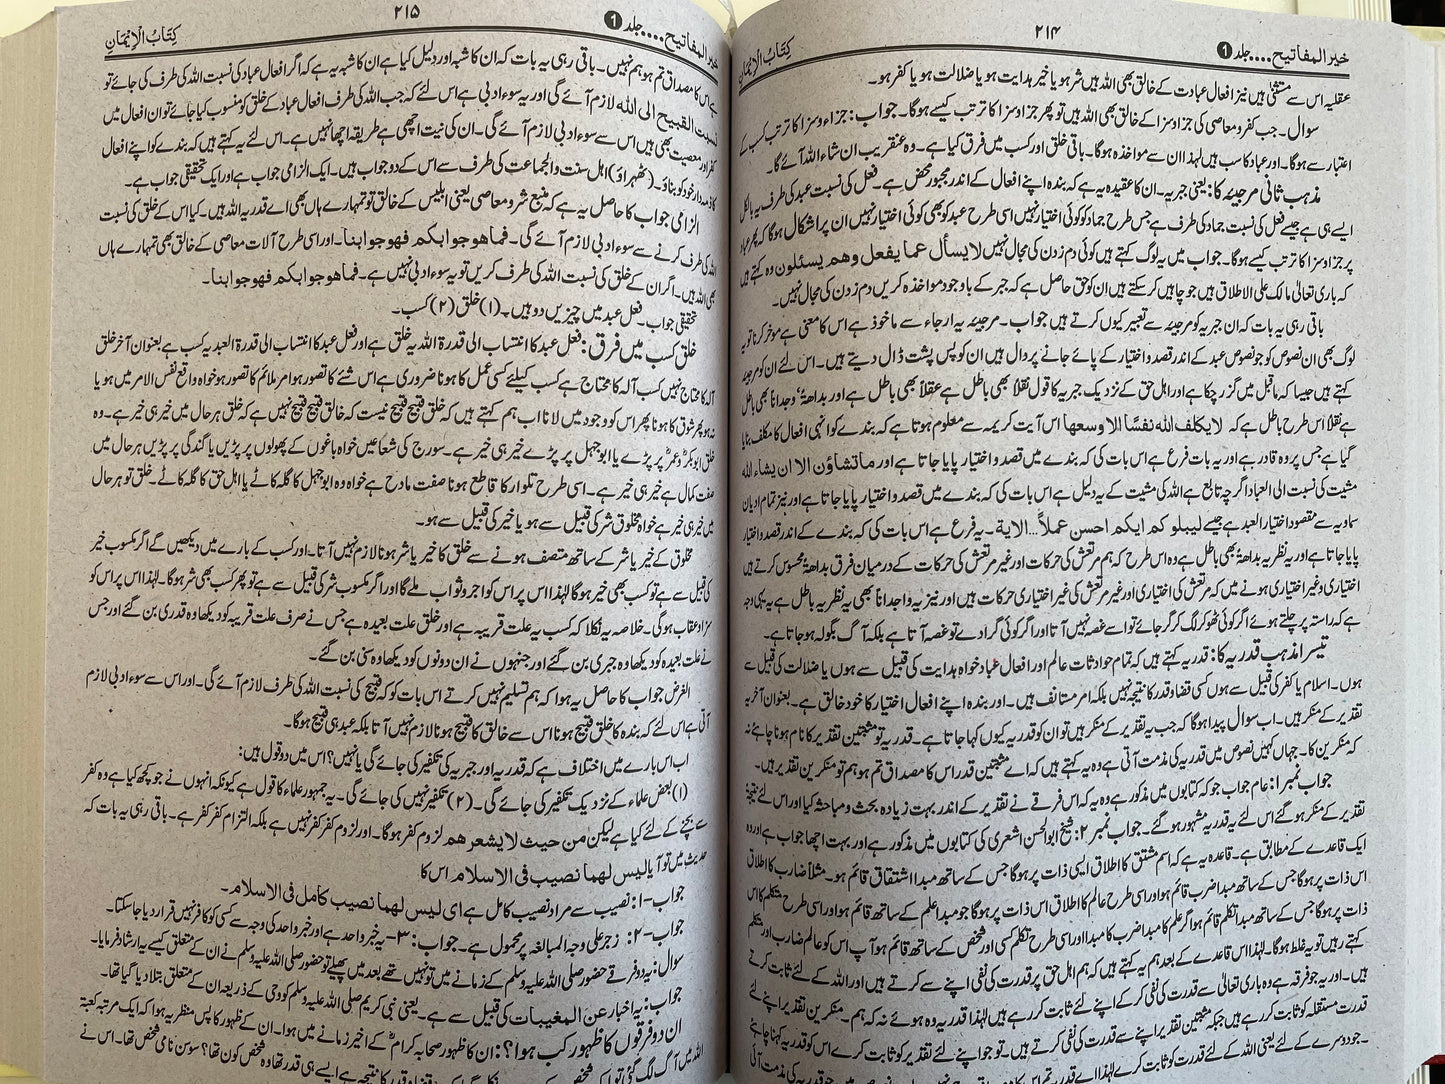 خیر المفاتیح....جلد ۱
۲۱۴
کِتَابُ الْاِیْمَانِ
عقلیہ اس سے مستثنیٰ ہیں نیز افعال عبادت کے خالق بھی اللہ ہیں شر ہو یا خیر ہدایت ہو یا ضلالت ہو یا کفر ہو۔
سوال۔ جب کفر و معاصی کی جزا و سزا کے خالق بھی اللہ ہیں تو پھر جزا و سزا کا ترتب کیسے ہوگا۔ جواب: جزاء و سزا کا ترتب کسب کے
اعتبار سے ہوگا۔ اور عباد کاسب ہیں لہٰذا ان سے مواخذہ ہوگا۔ باقی خلق اور کسب میں فرق کیا ہے۔ وہ عنقریب ان شاء اللہ آئے گا۔
مذہب ثانی مرجیئہ کا: یعنی جبریہ۔ ان کا عقیدہ یہ ہے کہ بندہ اپنے افعال کے اندر مجبور محض ہے۔ فعل کی نسبت عبد کی طرف یہ بالکل
ایسے ہی ہے جیسے فعل کی نسبت جماد کی طرف ہے جس طرح جماد کو کوئی اختیار نہیں اسی طرح عبد کو بھی کوئی اختیار نہیں ان پر اشکال ہوگا کہ پھر عباد
پر جزا و سزا کا ترتب کیسے ہوگا۔ جواب میں یہ لوگ کہتے ہیں کوئی دم زدن کی مجال نہیں لا یسأل عما یفعل وھم یسئلون وہ کہتے ہیں
کہ باری تعالیٰ مالک علی الاطلاق ہیں جو چاہیں کر سکتے ہیں ان کو حق حاصل ہے کہ جبر کے باوجود مواخذہ کریں دم زدن کی مجال نہیں۔
باقی رہی یہ بات کہ ان جبریہ کو مرجیئہ سے تعبیر کیوں کرتے ہیں جواب۔ مرجیئہ یہ ارجاء سے ماخوذ ہے اس کا معنی ہے مؤخر کرنا تو یہ
لوگ بھی ان نصوص کو جو نصوص عبد کے اندر قصد و اختیار کے پائے جانے پر دال ہیں ان کو پس پشت ڈال دیتے ہیں۔ اس لئے ان کو مرجیئہ
کہتے ہیں جیسا کہ ماقبل میں گزر چکا ہے اور اہل حق کے نزدیک جبریہ کا قول نقلاً بھی باطل ہے عقلاً بھی باطل ہے اور بداھۃً، وجداناً بھی باطل
ہے نقلاً اس طرح باطل ہے کہ لا یکلف اللہ نفسًا الا وسعھا اس آیت کریمہ سے معلوم ہوتا ہے کہ بندے کو انہی افعال کا مکلف بنایا
گیا ہے جس پر وہ قادر ہے اور یہ بات فرع ہے اس بات کی کہ بندے میں قصد و اختیار پایا جاتا ہے اور ما تشاؤن الا ان یشاء اللہ
مشیت کی نسبت الی العباد اگرچہ تابع ہے اللہ کی مشیت کے یہ دلیل ہے اس بات کی کہ بندے میں قصد و اختیار پایا جاتا ہے اور نیز تمام ادیان
سماویہ سے مقصود اختیار العبد ہے جیسے لیبلوکم ایکم احسن عملاً... الایۃ۔ یہ فرع ہے اس بات کی کہ بندے کے اندر قصد و اختیار
پایا جاتا ہے اور یہ نظریہ بداھۃً بھی باطل ہے وہ اس طرح کہ ہم مرتعش کی حرکات اور غیر مرتعش کی حرکات کے درمیان فرق بداھۃً محسوس کرتے ہیں
اختیاری و غیر اختیاری ہونے میں کہ مرتعش کی اختیاری اور غیر مرتعش کی غیر اختیاری حرکات ہیں اور نیز یہ واجداناً بھی یہ نظریہ باطل ہے یہی وجہ
ہے کہ راستہ پر چلتے ہوئے اگر کوئی ٹھوکر لگ کر گر جائے تو اسے غصہ نہیں آتا اور اگر کوئی گرا دے تو غصہ آتا ہے بلکہ آگ بگولہ ہو جاتا ہے۔
تیسرا مذہب قدریہ کا: قدریہ کہتے ہیں کہ تمام حوادثات عالم اور افعال عباد خواہ ہدایت کی قبیل سے ہوں یا ضلالت کی قبیل سے
ہوں۔ اسلام یا کفر کی قبیل سے ہوں کسی قضا و قدر کا نتیجہ نہیں بلکہ امر مستانف ہیں۔ اور بندہ اپنے افعال اختیار کا خود خالق ہے۔ بعنوان آخر یہ
تقدیر کے منکر ہیں۔ اب سوال پیدا ہوگا کہ جب یہ تقدیر کے منکر ہیں تو ان کو قدریہ کیوں کہا جاتا ہے۔ قدریہ تو مثبتین تقدیر کا نام ہونا چاہئے نہ
کہ منکرین کا۔ جہاں کہیں نصوص میں قدریہ کی مذمت آتی ہے وہ یہ کہتے ہیں کہ اے مثبتین قدر اس کا مصداق تم ہو ہم تو منکرین تقدیر ہیں۔
جواب نمبر ۱: عام جواب جو کہ کتابوں میں مذکور ہے وہ یہ کہ اس فرقے نے تقدیر کے اندر بہت زیادہ بحث و مباحثہ کیا اور اس لئے نتیجۃً
تقدیر کے منکر ہو گئے اس لئے یہ قدریہ مشہور ہو گئے۔ جواب نمبر ۲: شیخ ابوالحسن اشعری کی کتابوں میں مذکور ہے اور بہت اچھا جواب ہے اور وہ
ایک قاعدے کے مطابق ہے۔ قاعدہ یہ ہے کہ اسم مشتق کا اطلاق ایسی ذات پر ہوگا جس کے ساتھ مبدا اشتقاق قائم ہو۔ مثلاً ضارب کا اطلاق
اس ذات پر ہوگا جس کے ساتھ مبدا ضرب قائم ہو اور اسی طرح عالم کا اطلاق اس ذات پر ہوگا جو مبدا علم کے ساتھ قائم ہو اور اسی طرح متکلم کا اس
ذات پر ہوگا جس کے ساتھ مبدا تکلم قائم ہو اگر علم کا مبدا ضرب کا مبدا اور اسی طرح تکلم کسی اور شخص کے ساتھ قائم ہو آپ اس کو عالم ضارب اور متکلم
کہتے رہیں تو یہ غلط ہوگا۔ لہٰذا اس قاعدے کے بعد ہم یہ کہتے ہیں کہ ہم اہل حق پر قدرت کی نفی اپنے سے کرتے ہیں اور اللہ کے لئے ثابت کرتے
ہیں۔ اور یہ جو فرقہ ہے وہ باری تعالیٰ سے قدرت کی نفی کر کے اپنے لئے ثابت کرتے ہیں لہٰذا قدریہ وہ ہوئے نہ کہ ہم۔ منکرین تقدیر اپنے لئے
قدرت مستقلہ کو ثابت کرتے ہیں جبکہ مثبتین تقدیر اپنے سے قدرت کی نفی کرتے ہیں۔ تو جو اپنے لئے تقدیر کو ثابت کرے اس کو قدریہ کہنا چاہئے
۔ جو دوسرے کے لئے یعنی اللہ کے لئے قدرت کو ثابت کرے لہٰذا اے قدریہ تم اس کا مصداق
خیر المفاتیح....جلد ۱
۲۱۵
کِتَابُ الْاِیْمَانِ
ہے اس کا مصداق تم ہو ہم نہیں۔ باقی رہی یہ بات کہ ان کا شبہ اور دلیل کیا ہے ان کا شبہ یہ ہے کہ اگر افعال عباد کی نسبت اللہ کی طرف کی جائے تو
نسبت القبیح الی اللہ لازم آئے گی اور یہ سوء ادبی ہے اس لئے کہ جب اللہ کی طرف افعال عباد کے خلق کو منسوب کیا جائے تو ان افعال میں
کفر اور معصیت بھی ہیں اس سے سوء ادبی لازم آئے گی۔ ان کی نیت اچھی ہے طریقہ اچھا نہیں ہے۔ اس لئے یہ کہتے ہیں کہ بندے کو اپنے افعال
کا ذمہ دار خود کو بناؤ۔ (ٹھہراؤ) اہل سنت والجماعت کی طرف سے اس کے دو جواب ہیں۔ ایک الزامی جواب ہے اور ایک تحقیقی جواب ہے۔
الزامی جواب کا حاصل یہ ہے کہ منبع شر و معاصی یعنی ابلیس کے خالق تو تمہارے ہاں بھی اے قدریہ اللہ ہیں۔ کیا اس کے خلق کی نسبت
اللہ کی طرف کرنے سے سوء ادبی لازم آئے گی۔ فما ھو جوابکم فھو جوابنا۔ اور اسی طرح آلات معاصی کے خالق بھی تمہارے ہاں
بھی اللہ ہیں۔ اگر ان کے خلق کی نسبت اللہ کی طرف کریں تو یہ سوء ادبی نہیں ہے۔ فما ھو جوابکم فھو جوابنا۔
تحقیقی جواب۔ فعل عبد میں چیزیں دو ہیں۔ (۱) خلق (۲) کسب۔
خلق کسب میں فرق: فعل عبد کا انتساب الی قدرۃ اللہ یہ خلق ہے اور فعل عبد کا انتساب الی قدرۃ العبد یہ کسب ہے بعنوان آخر خلق
آلہ کا محتاج نہیں کسب آلہ کا محتاج ہے کسب کیلئے کسی عمل کا ہونا ضروری ہے اس شئے کا تصور ہو امر ملائم کا تصور ہو خواہ واقع نفس الامر میں ہو یا
نہ ہو پھر شوق کا ہونا پھر اس کو وجود میں لانا اب ہم کہتے ہیں کہ خلق قبیح قبیح نیست کہ خالق قبیح قبیح نہیں ہے کہ خلق ہر حال میں خیر ہی خیر ہے۔ وہ
خلق ابوبکرؓ و عمرؓ پر پڑے یا ابوجہل پر پڑے خیر ہی خیر ہے۔ سورج کی شعاعیں خواہ باغوں کے پھولوں پر پڑیں یا گندگی پر پڑیں ہر حال میں
صفت کمال ہے خیر ہی خیر ہے۔ اسی طرح تلوار کا قاطع ہونا صفت مادح ہے خواہ وہ ابوجہل کا گلہ کاٹے یا اہل حق کا گلہ کاٹے۔ خلق تو ہر حال
میں خیر ہی خیر ہے خواہ مخلوق شر کی قبیل سے ہو یا خیر کی قبیل سے ہو۔
مخلوق کے خیر یا شر کے ساتھ متصف ہونے سے خلق کا خیر یا شر ہونا لازم نہیں آتا۔ اور کسب کے بارے میں دیکھیں گے اگر مکسوب خیر
کی قبیل سے ہے تو کسب بھی خیر ہوگا لہٰذا اس پر اس کو اجر و ثواب ملے گا اور اگر مکسوب شر کی قبیل سے ہے تو پھر کسب بھی شر ہوگا۔ لہٰذا اس پر اس کو
سزا و عقاب ہوگی۔ خلاصہ یہ نکلا کہ کسب یہ علت قریبہ ہے اور خلق علت بعیدہ ہے جس نے صرف علت قریبہ کو دیکھا وہ قدری بن گئے اور جس
نے علت بعیدہ کو دیکھا وہ جبری بن گئے اور جنہوں نے ان دونوں کو دیکھا وہ سنی بن گئے۔
الغرض جواب کا حاصل یہ ہوا کہ ہم تسلیم نہیں کرتے اس بات کو کہ قبیح کی نسبت اللہ کی طرف لازم آئے گی۔ اور اس سے سوء ادبی لازم
آتی ہے اس لئے کہ بندہ کا خلق قبیح ہونا اس سے خالق کا قبیح ہونا لازم نہیں آتا بلکہ عبد ہی قبیح ہوگا۔
اب اس بارے میں اختلاف ہے کہ قدریہ اور جبریہ کی تکفیر کی جائے گی یا نہیں؟ اس میں دو قول ہیں:
(۱) بعض علماء کے نزدیک تکفیر کی جائے گی۔ (۲) تکفیر نہیں کی جائے گی۔ یہ جمہور علماء کا قول ہے کیونکہ انہوں نے جو کچھ کیا ہے وہ کفر
سے بچنے کے لئے کیا ہے لیکن من حیث لا یشعرھم لزوم کفر ہوگا۔ اور لزوم کفر کفر نہیں ہے بلکہ التزام کفر کفر ہے۔ باقی رہی یہ بات کہ
حدیث میں تو آیا لیس لھما نصیب فی الاسلام اس کا
جواب-۱: نصیب سے مراد نصیب کامل ہے ای لیس لھما نصیب کامل فی الاسلام۔
جواب-۲: زجر علی وجہ المبالغہ پر محمول ہے۔ جواب: ۳-یہ خبر واحد ہے اور خبر واحد کی وجہ سے کسی کو کافر نہیں قرار دیا جا سکتا۔
سوال: یہ دو فرقے حضور صلی اللہ علیہ وسلم کے زمانے میں تو نہیں تھے بعد میں پھیلے تو حضور صلی اللہ علیہ وسلم نے ان کے متعلق کیسے یہ ارشاد فرمایا۔
جواب: یہ اخبار عن المغیبات کی قبیل سے ہے۔ یعنی نبی کریم صلی اللہ علیہ وسلم کو وحی کے ذریعہ ان کے متعلق بتلا دیا گیا تھا۔
ان دو فرقوں کا ظہور کب ہوا؟: ان کا ظہور صحابہ کرامؓ کے اخیر زمانے میں ہوا۔ ان کے ظہور کا پس منظر یہ ہوا کہ ایک مرتبہ کعبۃ
اللہ میں آگ لگ گئی تو ایک شخص تھا وہ شخص کون تھا؟ سوسن نامی شخص تھا۔ اس نے